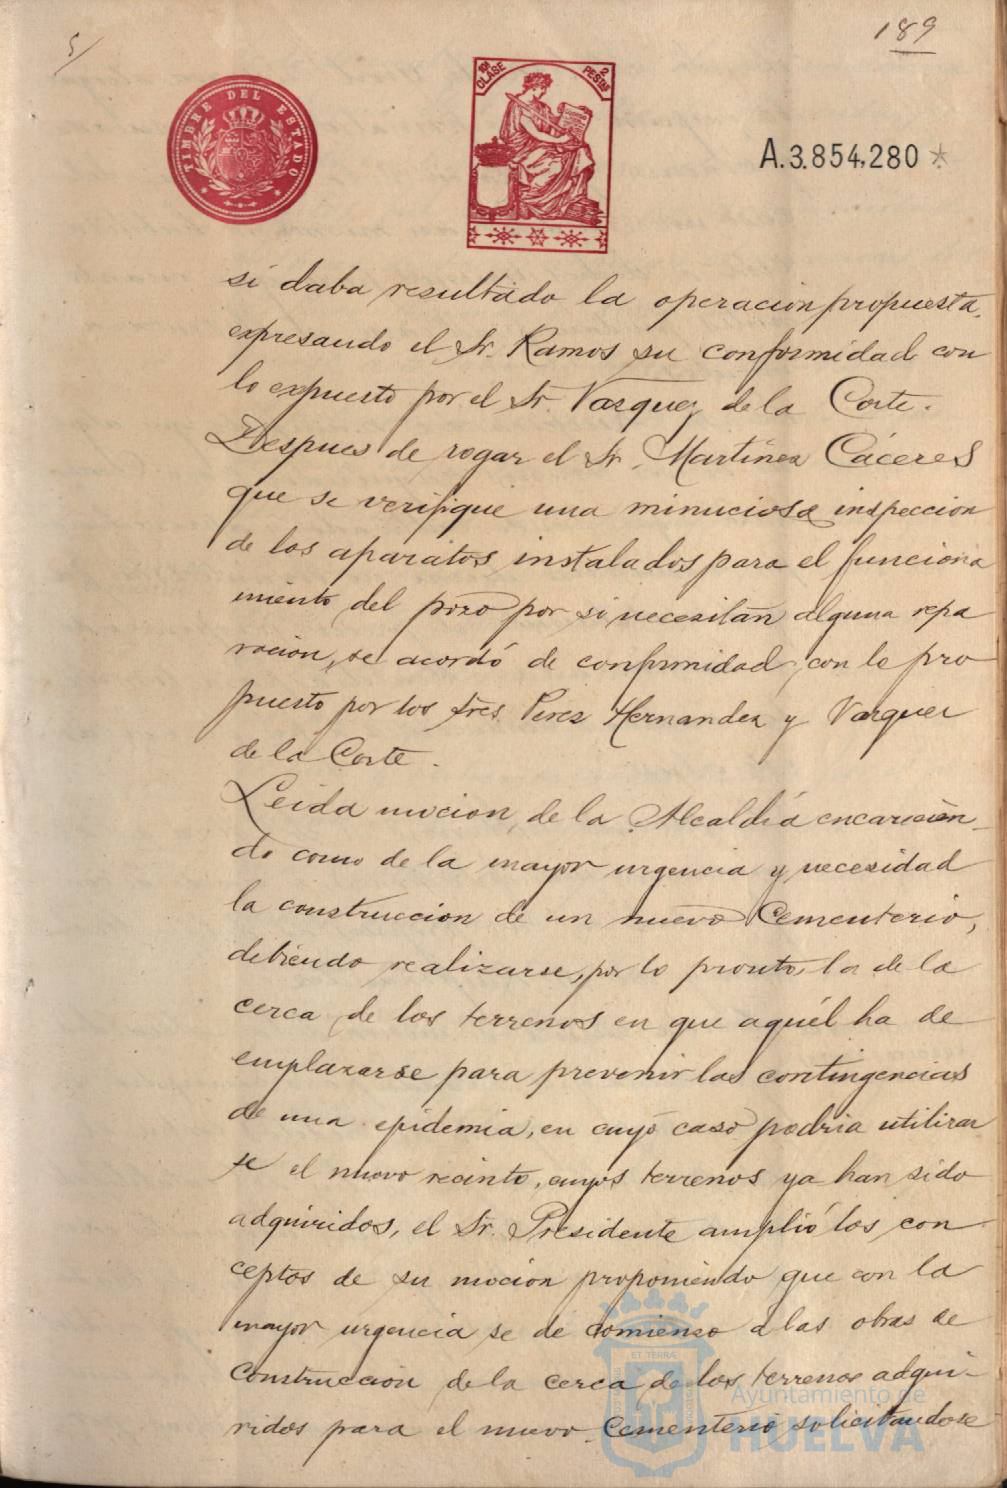 5/
189
TIMBRE DEL ESTADO
10ª CLASE
2 PESETAS
A.3.854,280 *
si daba resultado la operacion propuesta,
expresando el Sr. Ramos su conformidad con
lo expuesto por el Sr. Vazquez de la Corte.
Despues de rogar el Sr. Martinez Cáceres
que se verifique una minuciosa inspeccion
de los aparatos instalados para el funciona
miento del pozo por si necesitan alguna repa
racion, se acordó de conformidad con lo pro
puesto por los Sres. Perez Hernandez y Vazquez
de la Corte.
Leida mocion de la Alcaldía encarecien-
do como de la mayor urgencia y necesidad
la construccion de un nuevo Cementerio,
debiendo realizarse, por lo pronto, la de la
cerca de los terrenos en que aquél ha de
emplazarse para prevenir las contingencias
de una epidemia, en cuyo caso podria utilizar
se el nuevo recinto, cuyos terrenos ya han sido
adquiridos, el Sr. Presidente amplió los con
ceptos de su mocion proponiendo que con la
mayor urgencia se de comienzo á las obras de
construccion de la cerca de los terrenos adqui-
ridos para el nuevo Cementerio solicitandose
ET TERRÆ
Ayuntamiento de
HUELVA